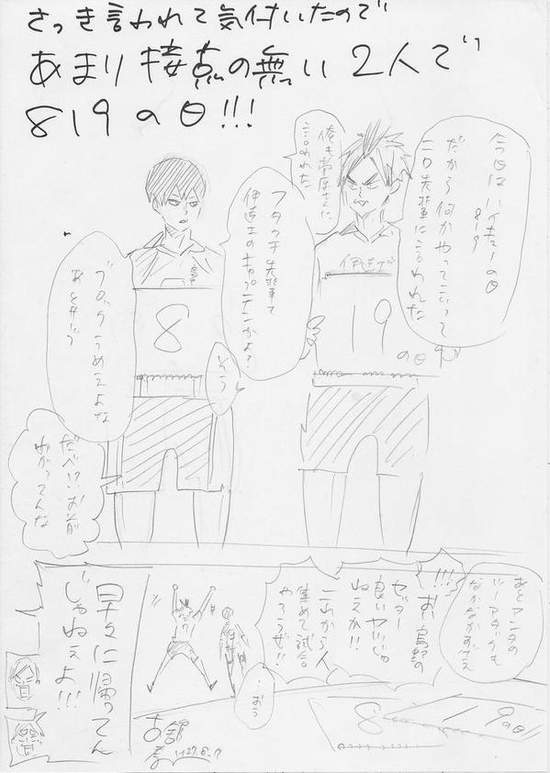 さっき言われて気付いたので
あまり接点の無い2人で
819の日!!!
今日はハイキューの日
819
だから何かやってこいって
二口先輩に言われた
俺も菅原さんに
言われた
フタクチ先輩て
伊達工のキャプテンかよ?
そう
ブロックうめぇよな
あとサーブ
だべ!?お前
わかってんな
伊達工
19
の日
8
あとアンタの
ツーアタックも
なかなかすげえ
!!!
おい烏野の
セッター
良いヤツじゃ
ねえか!!
これから人
集めて試合
やろうぜ!!
…おう
早々に帰ってん
じゃねえよ!!!
8
1
9の日
古舘
春一